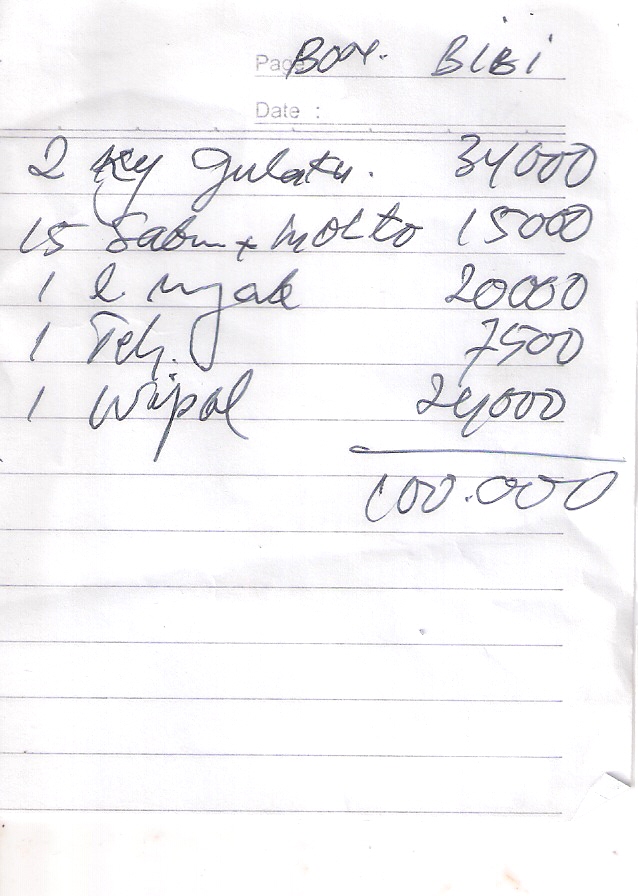 Page BON. BIBI
Date :
2 Kg Gulaku. 34000
15 Sabun + Molto 15000
1 L Minyak 20000
1 Teh. 7500
1 Wipol 24000
100.000